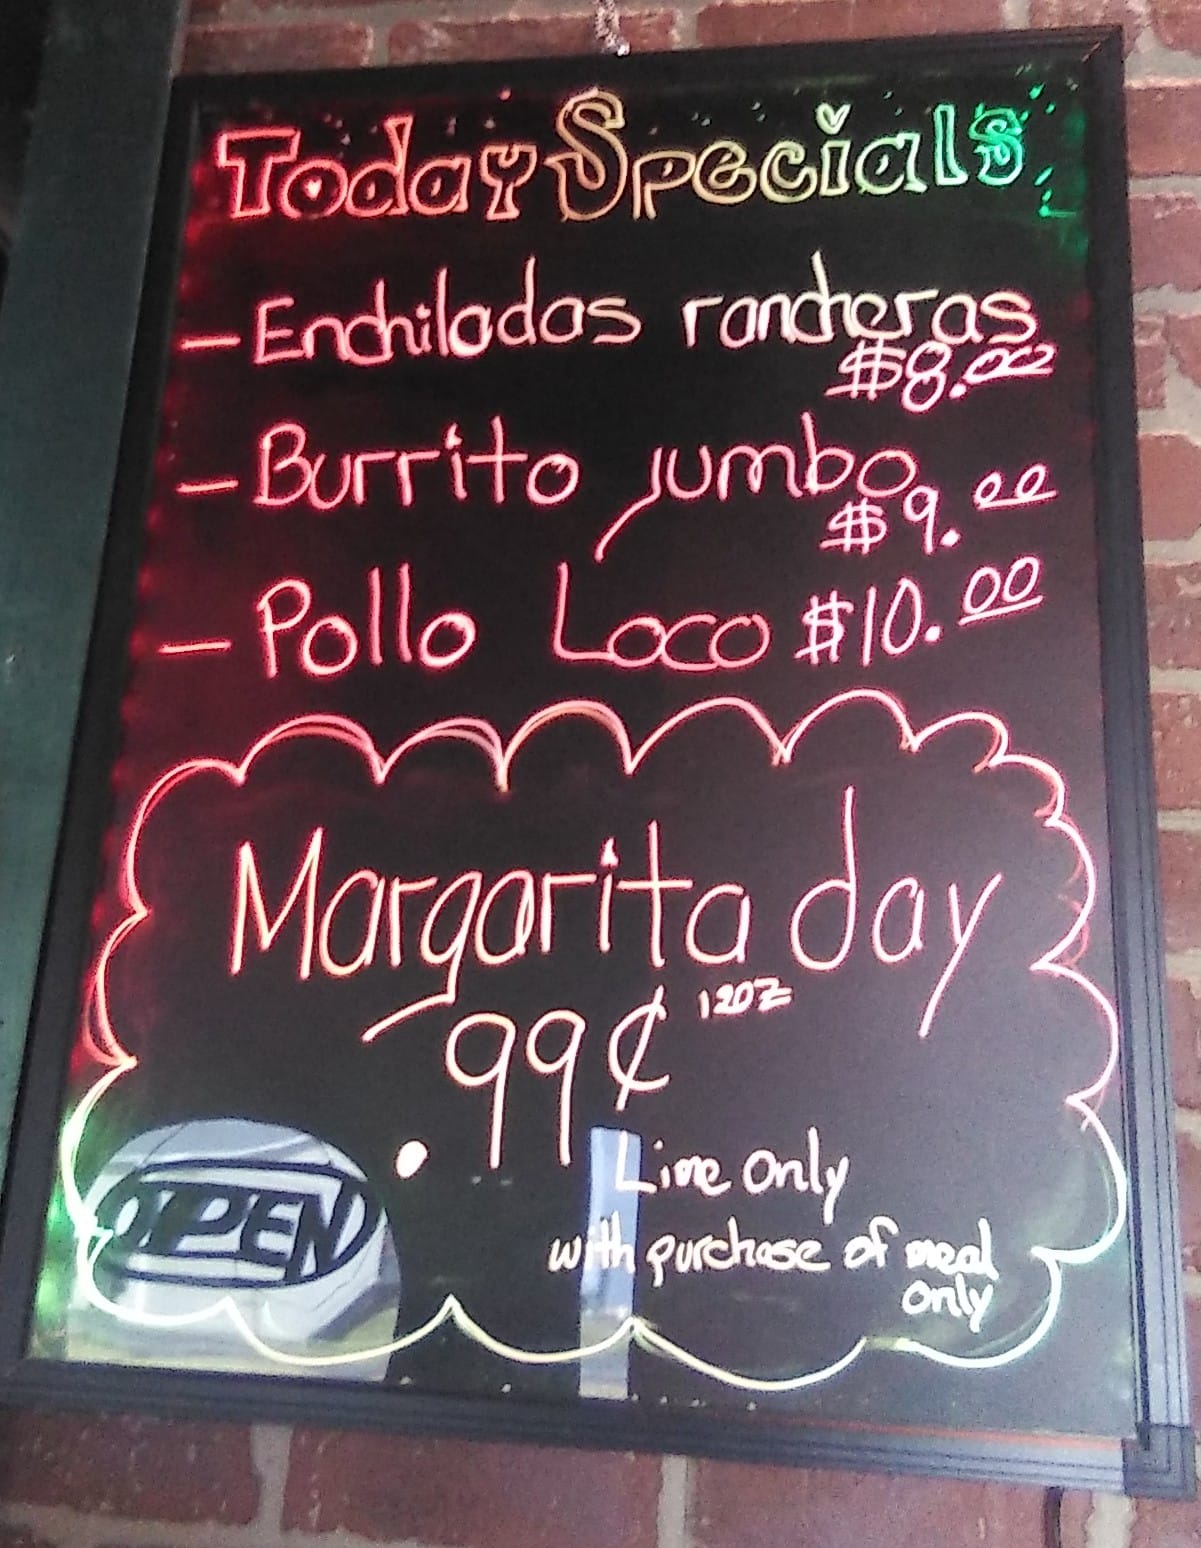 Today Specials
- Enchiladas rancheras
$8.00
- Burrito jumbo
$9.00
- Pollo Loco $10.00
Margarita day
.99¢ 12oz
Lime only
with purchase of meal
only
OPEN